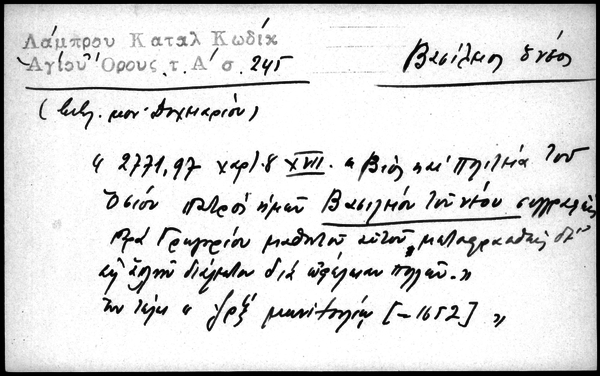 Λάμπρου Καταλ Κωδίκ
Ἁγίου Ὄρους τ. Α΄ σ. 245
Βασίλειος ὁ νέος
(βιβλ. μον. Δοχειαρίου)
« 2771,97 χαρτ. 8 XVII. « Βίος καὶ Πολιτεία τοῦ
Ὁσίου πατρὸς ἡμῶν Βασιλείου τοῦ νέου συγγραφεὶς
παρὰ Γρηγορίου μαθητοῦ αὐτοῦ, μεταφρασθεὶς δὲ
εἰς ἁπλῆν διάλεκτον διὰ ὠφέλειαν πολλῶν. »
[-1652] »